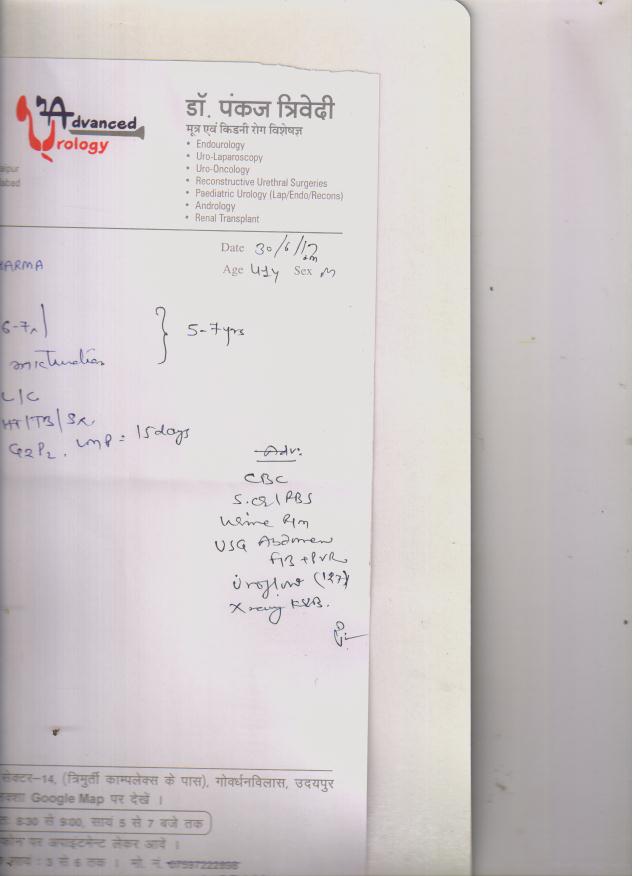 Advanced
Urology
डॉ. पंकज त्रिवेदी
मूत्र एवं किडनी रोग विशेषज्ञ
• Endourology
• Uro-Laparoscopy
• Uro-Oncology
• Reconstructive Urethral Surgeries
• Paediatric Urology (Lap/Endo/Recons)
• Andrology
• Renal Transplant
aipur
abad
Date 30/6/17
Age 41y Sex M
ARMA
6-7x
5-7yrs
micturation
L/C
HT/TB/Sx
G2P2, LMP = 15 days
Adv.
CBC
S.cr/RBS
Urine R/m
USG Abdomen
FB + PVR
Uroflow
Xray KUB.
सेक्टर–14, (त्रिमुर्ती काम्पलेक्स के पास), गोवर्धनविलास, उदयपुर
Google Map पर देखें ।
8:30 से 9:00, सायं 5 से 7 बजे तक
फोन पर अपाइंटमेन्ट लेकर आवें ।
सायं : 3 से 6 तक । मो. नं.